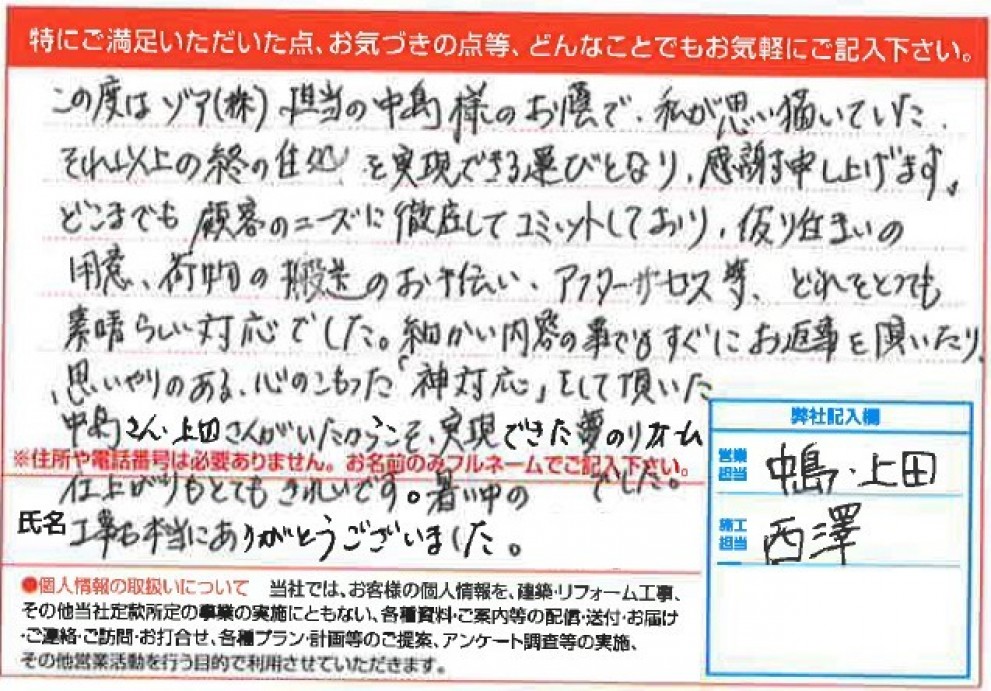 特にご満足いただいた点、お気づきの点等、どんなことでもお気軽にご記入下さい。
この度はゾア(株)、担当の中島様のお蔭で、私が思い描いていた、
それ以上の終の住処を実現できる運びとなり、感謝申し上げます。
どこまでも顧客のニーズに徹底してコミットしており、仮り住まいの
用意、荷物の搬送のお手伝い、アフターサービス等、どれをとっても
素晴らしい対応でした。細かい内容の事でもすぐにお返事を頂いたり、
思いやりのある、心のこもった「神対応」をして頂いた
中島さん・上田さんがいたからこそ、実現できた夢のリフォーム
でした。
※住所や電話番号は必要ありません。お名前のみフルネームでご記入下さい。
仕上がりもとてもきれいです。暑い中の
氏名
工事も本当にありがとうございました。
弊社記入欄
営業担当 中島・上田
施工担当 西澤
●個人情報の取扱いについて 当社では、お客様の個人情報を、建築・リフォーム工事、
その他当社定款所定の事業の実施にともない、各種資料・ご案内等の配信・送付・お届け
・ご連絡・ご訪問・お打合せ、各種プラン・計画等のご提案、アンケート調査等の実施、
その他営業活動を行う目的で利用させていただきます。